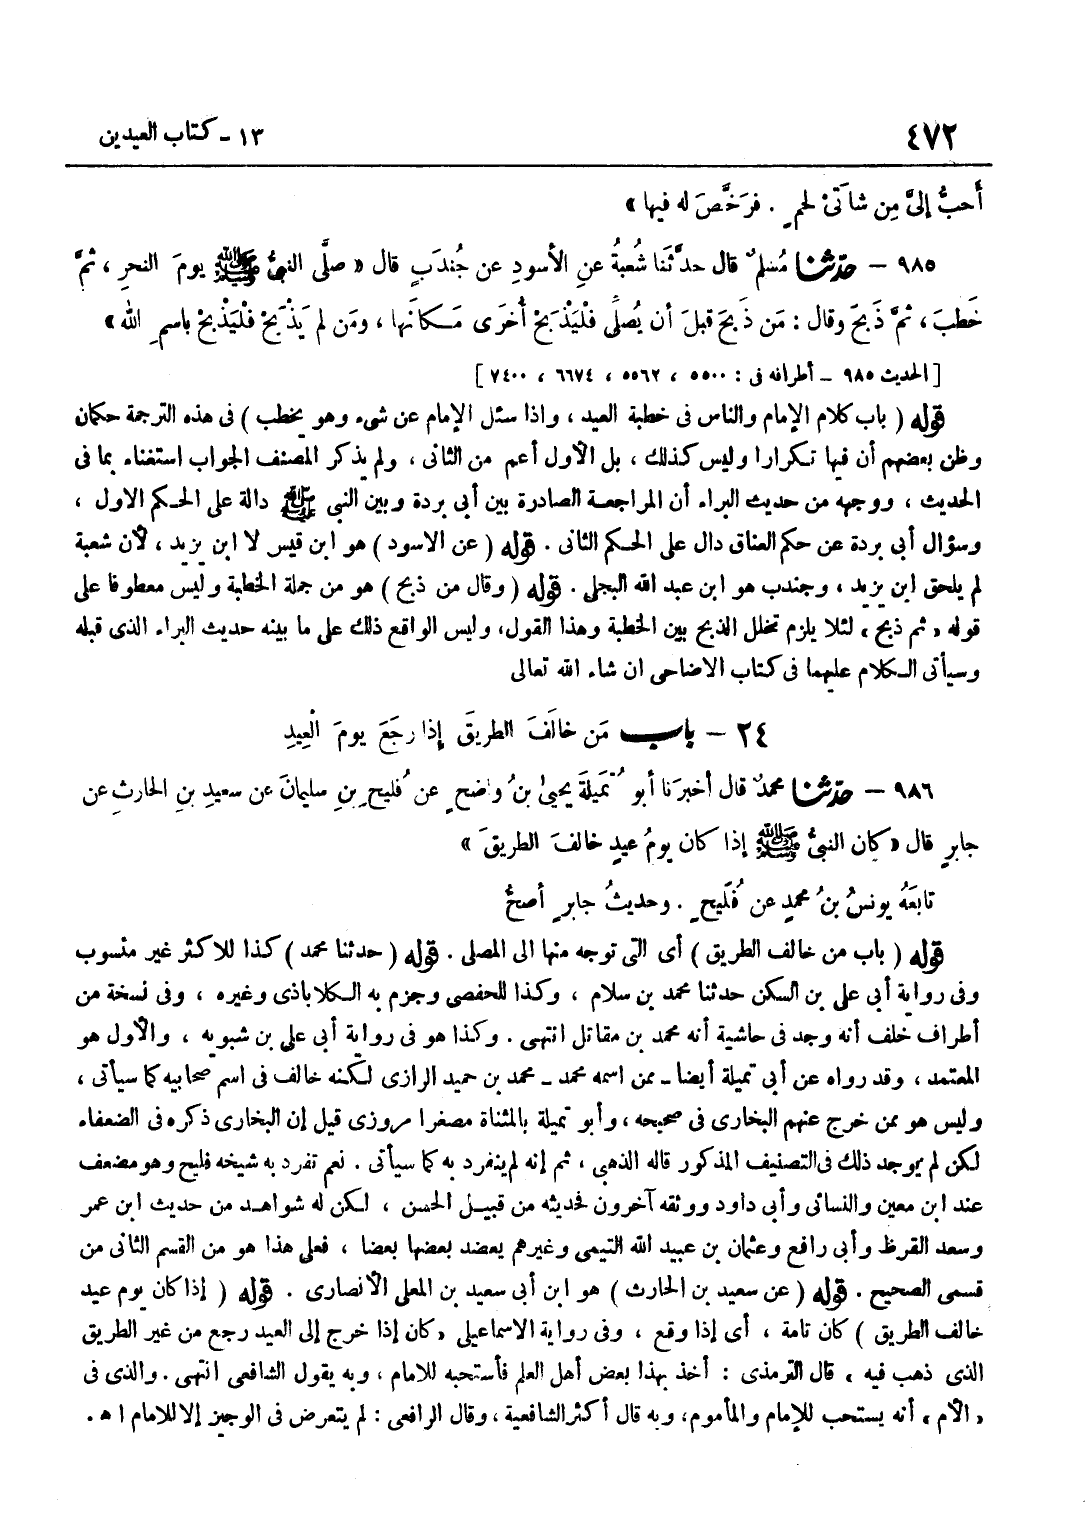 ٤٧٢
١٣ - كتاب العيدين
أَحبُّ إليَّ مِن شاتَىْ لحمٍ . فرَخَّصَ له فيها »
٩٨٥ - حدّثنا مُسلمٌ قال حدَّثَنا شُعبةُ عنِ الأسودِ عن جُندَبٍ قال « صلَّى النبىُّ ﷺ يومَ النحرِ ، ثمَّ
خَطبَ ، ثمَّ ذَبحَ وقال : مَن ذَبحَ قبلَ أن يُصلِّىَ فلْيَذْبَحْ أُخرَى مَـكانَها ، ومَن لم يَذْبَحْ فلْيَذْبحْ باسمِ الله »
[ الحديث ٩٨٥ - أطرافه فى : ٥٥٠٠ ، ٥٥٦٢ ، ٦٦٧٤ ، ٧٤٠٠ ]
قوله ( باب كلام الإمام والناس فى خطبة العيد ، واذا سئل الإمام عن شىء وهو يخطب ) فى هذه الترجمة حكمان
وظن بعضهم أن فيها تـكرارا وليس كذلك ، بل الأول أعم من الثانى ، ولم يذكر المصنف الجواب استغناء بما فى
الحديث ، ووجهه من حديث البراء أن المراجعة الصادرة بين أبي بردة وبين النبى ﷺ دالة على الحـكم الاول ،
وسؤال أبى بردة عن حكم العناق دال على الحـكم الثانى . قوله ( عن الاسود ) هو ابن قيس لا ابن يزيد ، لأن شعبة
لم يلحق ابن يزيد ، وجندب هو ابن عبد الله البجلى . قوله ( وقال من ذبح ) هو من جملة الخطبة وليس معطوفا على
قوله « ثم ذبح » لئلا يلزم تخلل الذبح بين الخطبة وهذا القول، وليس الواقع ذلك على ما بينه حديث البراء الذى قبله
وسيأتى الـكلام عليهما فى كتاب الاضاحى ان شاء الله تعالى
٢٤ - باب مَن خالَفَ الطريقَ إذا رجَعَ يومَ العِيدِ
٩٨٦ - حدّثنا محمدٌ قال أخبرَنا أبو تُمَيلةَ يحيىٰ بنُ واضحٍ عن فُليحِ بنِ سليمانَ عن سعيدِ بنِ الحارثِ عن
جابرٍ قال « كان النبىُّ ﷺ إذا كان يومُ عيدٍ خالفَ الطريقَ »
تابَعَهُ يونسُ بنُ محمدٍ عن فُلَيحٍ . وحديثُ جابرٍ أصحُّ
قوله ( باب من خالف الطريق ) أى التى توجه منها الى المصلى . قوله ( حدثنا محمد ) كذا للاكثر غير منسوب
وفى رواية أبى على بن السكن حدثنا محمد بن سلام ، وكذا للحفصى وجزم به الـكلاباذى وغيره ، وفى نسخة من
أطراف خلف أنه وجد فى حاشية أنه محمد بن مقاتل انتهى . وكذا هو فى رواية أبى على بن شبويه ، والأول هو
المعتمد ، وقد رواه عن أبي تميلة أيضا - ممن اسمه محمد - محمد بن حميد الرازى لـكنه خالف فى اسم صحابيه كما سيأتى ،
وليس هو ممن خرج عنهم البخارى فى صحيحه ، وأبو تميلة بالمثناة مصغرا مروزى قيل إن البخارى ذكره فى الضعفاء
لكن لم يوجد ذلك فى التصنيف المذكور قاله الذهبى ، ثم إنه لم ينفرد به كما سيأتى . نعم تفرد به شيخه فليح وهو مضعف
عند ابن معين والنسائى وأبى داود ووثقه آخرون فحديثه من قبيـل الحسن ، لـكن له شواهـد من حديث ابن عمر
وسعد القرظ وأبى رافع وعثمان بن عبيد الله التيمى وغيرهم يعضد بعضها بعضا ، فعلى هذا هو من القسم الثانى من
قسمى الصحيح . قوله ( عن سعيد بن الحارث ) هو ابن أبى سعيد بن المعلى الأنصارى . قوله ( إذا كان يوم عيد
خالف الطريق ) كان تامة ، أى إذا وقع ، وفى رواية الاسماعيلى « كان إذا خرج إلى العيد رجع من غير الطريق
الذى ذهب فيه » قال الترمذى : أخذ بهذا بعض أهل العلم فأستحبه للامام ، وبه يقول الشافعى انتهى . والذى فى
« الأم » أنه يستحب للإمام والمأموم، وبه قال أكثر الشافعية ، وقال الرافعى : لم يتعرض فى الوجيز إلا للامام ا هـ .